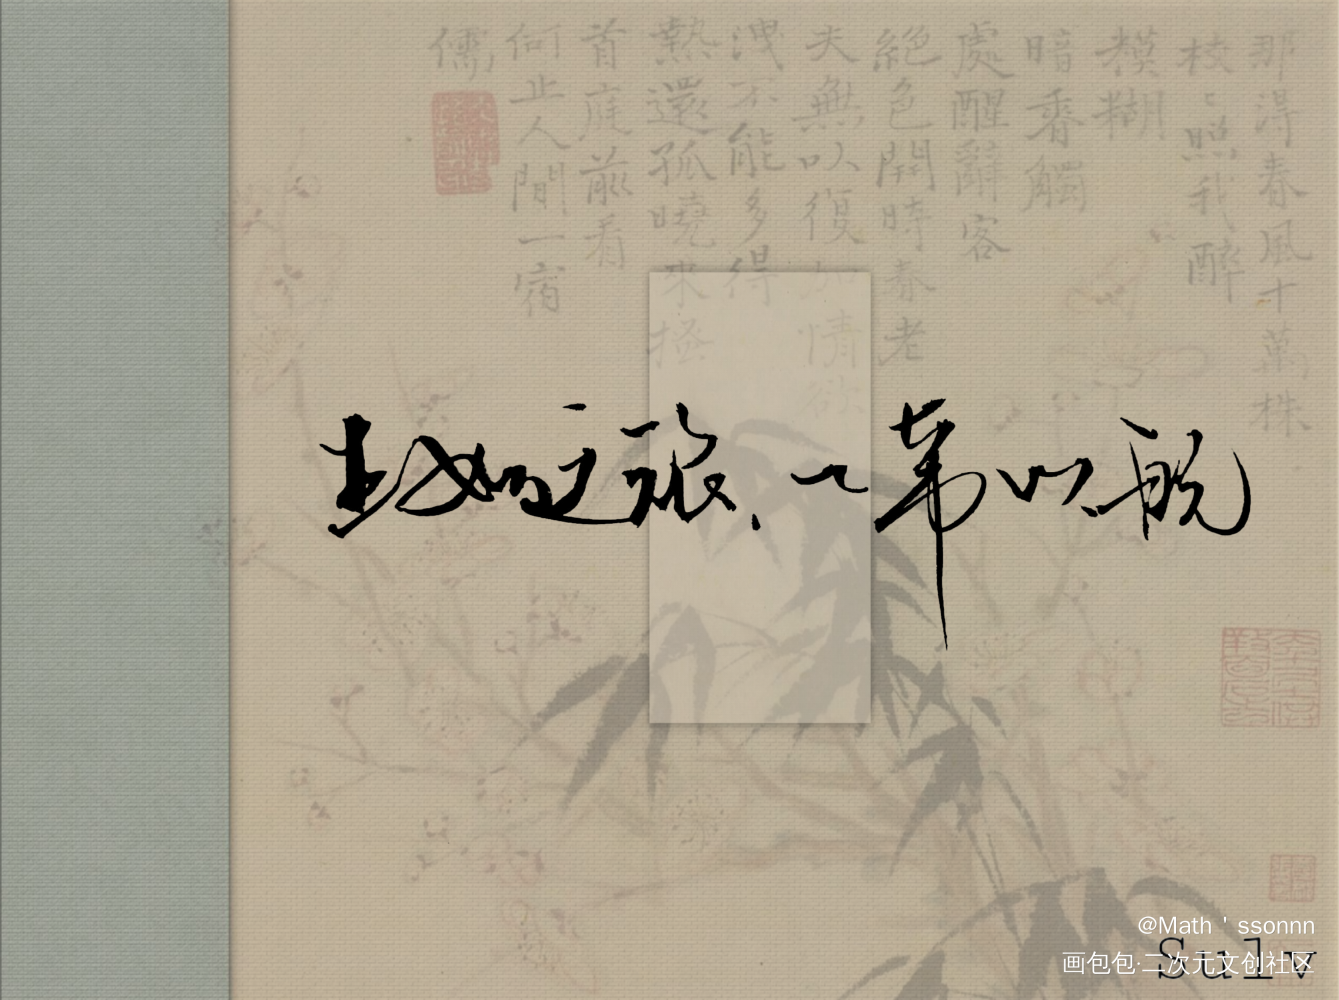 那得春風十萬株
枝〻照我醉
模糊
暗香觸
處醒辭客
絕色開時春老
夫無以復加情欲
洩不能多得
熱還孤曉來拯
首庭前看
何止人間一宿
儒
之旅、一苇以航
@Math ' ssonnn
画包包·二次元文创社区
Sulv